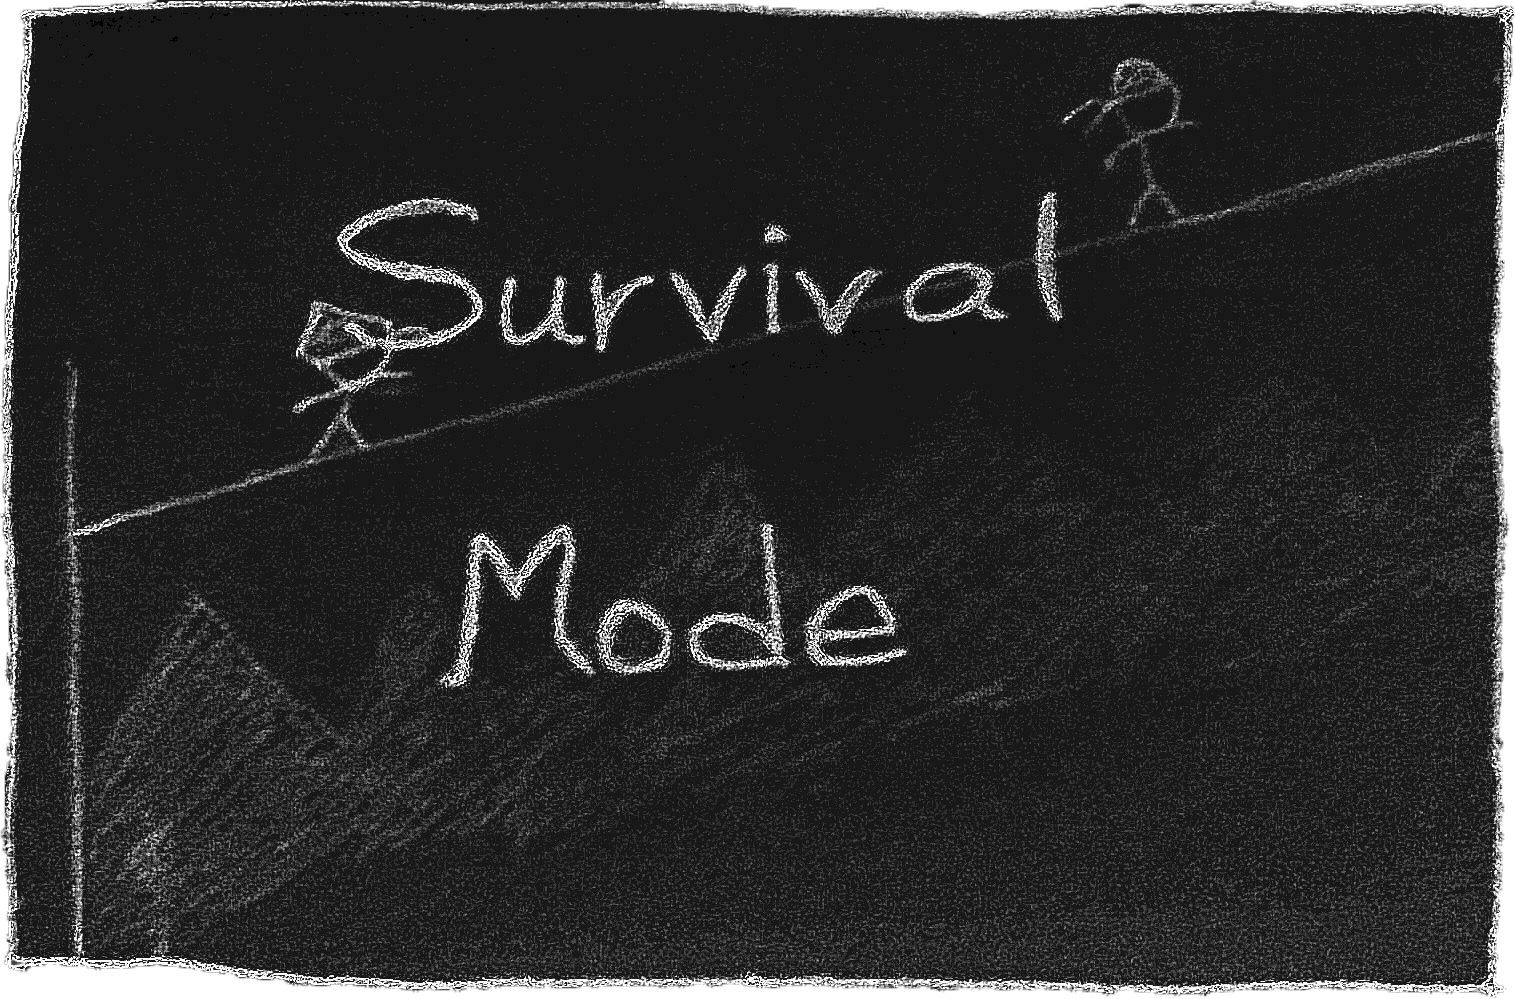 Survival
Mode